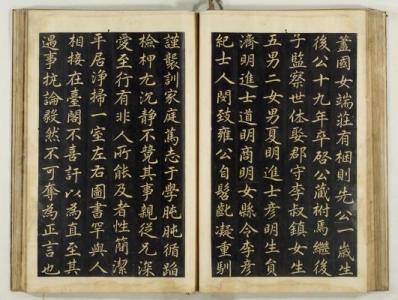 蓋國女端莊有梱則先公一歲生
後公十九年卒啓公藏柎焉繼後
子監察世休娶郡守李叔鎮女生
五男二女男夏明進士彥明生員
濟明進士道明商明女縣令李彥
紀士人閔致雍公自髫齔凝重馴
謹襲訓家庭篤志于學肫肫循蹈
檢柙尤沉靜不競其事親從兄深
愛至行有非人所能及者性簡潔
平居淨掃一室左右圖書罕與人
相接在臺閣不喜訐以為直至其
遇事抗論毅然不可奪為正言也